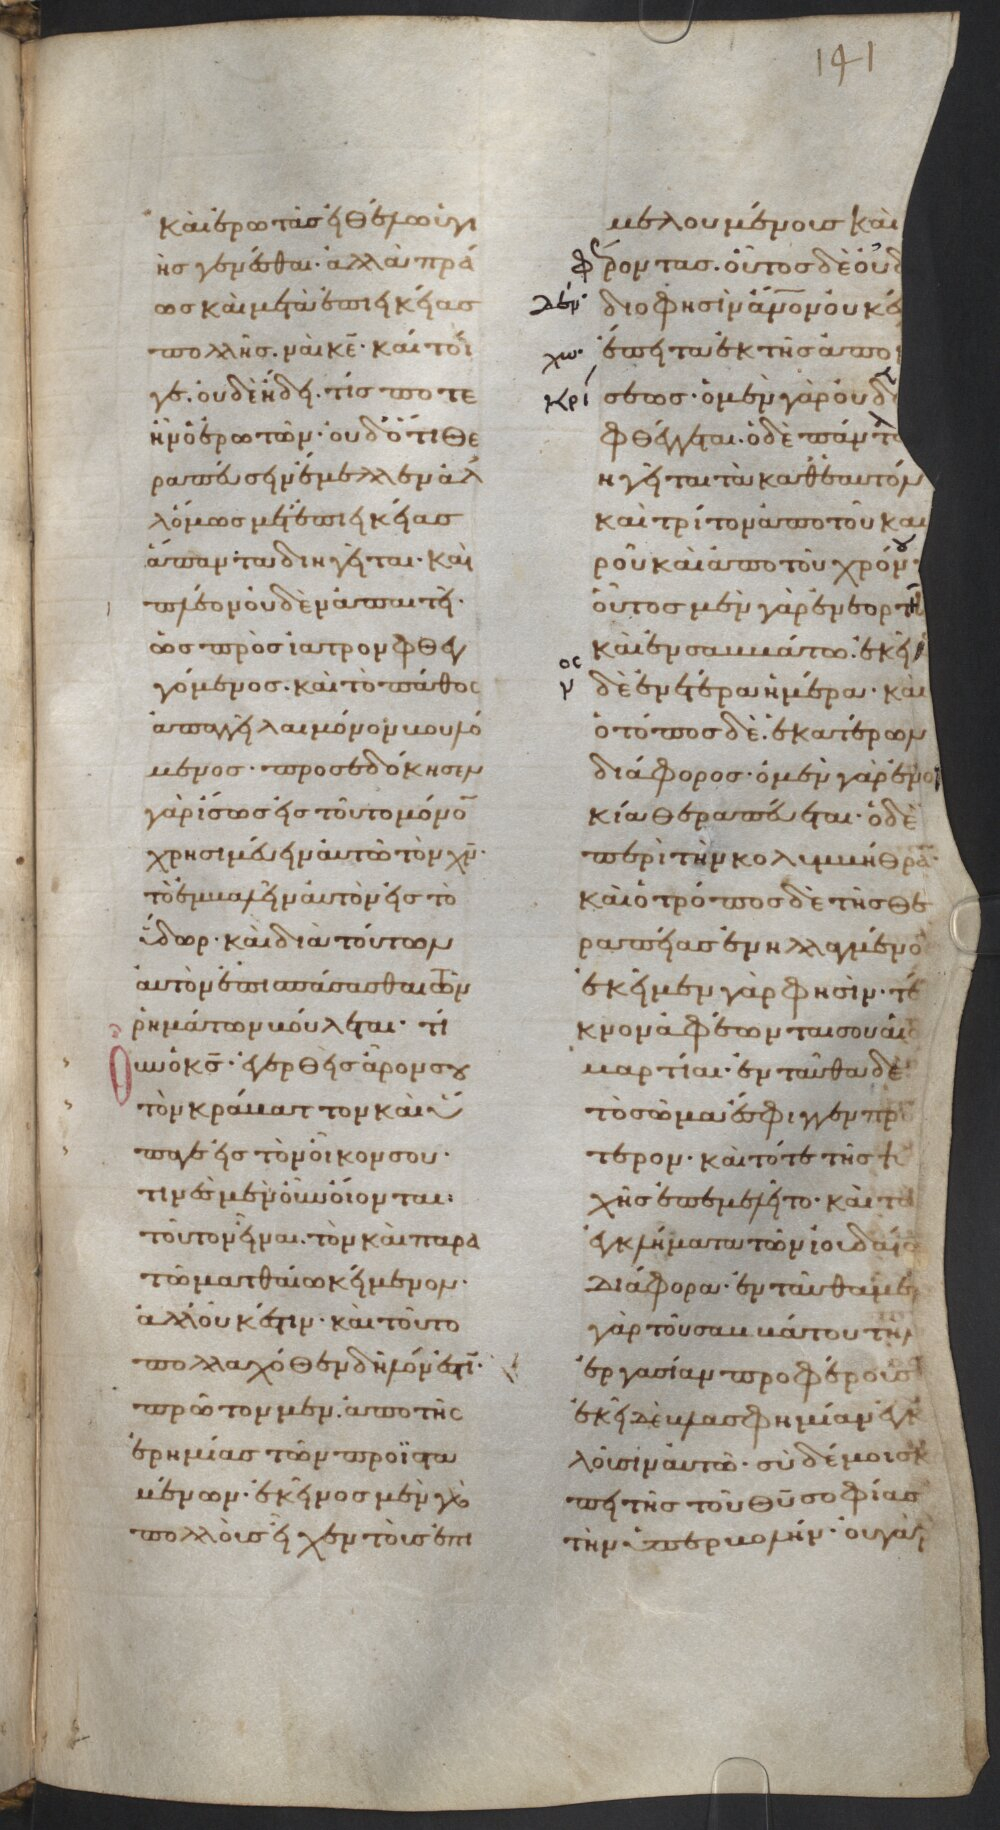 141
καὶ ἐρωτᾶς εἰ θέλω ὑγι
ὴς γενέσθαι· ἀλλὰ πρά
ως καὶ μετὰ ἐπιεικείας
πολλῆς. ναὶ κε̅· καί τοί
γε. οὐδὲ ἤδει. τίς ποτε
ἦν ὁ ἐρωτῶν· οὐδ' ὅτι θε
ραπεύσειν ἔμελλεν ἀλ
λ' ὅμως μετ' ἐπιεικείας
ἅπαντα διηγεῖται· καὶ
πλέον οὐδὲν ἀπαιτεῖ·
ὡς πρὸς ἰατρὸν φθεγ
γόμενος. καὶ τὸ πάθος
ἀπαγγεῖλαι μόνον βουλό
μενος· προσεδόκησεν
γὰρ ἴσως εἰς τοῦτο μόνο̅
χρησιμεύειν αὐτῶ τὸν χν̅·
τὸ ἐμβαλεῖν αὐτὸν εἰς τὸ
ὕδωρ· καὶ διὰ τούτων
αὐτὸν ἐπισπάσασθαι τῶν
ῥημάτων βούλεται· τί
οὖν ὁ κς̅· ἐγερθεὶς ἆρον σου
τὸν κράβαττον καὶ ὕ
παγε εἰς τὸν οἶκον σου·
τινὲς μὲν οὖν οἴονται:
τοῦτον εἶναι. τὸν καὶ παρὰ
τῶ ματθαίω κείμενον·
ἀλλ' οὐκ ἔστιν· καὶ τοῦτο
πολλαχόθεν δῆλόν ἐστι̅·
πρῶτον μὲν. ἀπὸ τῆς
ἐρημίας τῶν προϊστα
μένων· ἐκεῖνος μὲν γὰρ
πολλοὺς εἶχεν τοὺς ἐπι
μελουμένους καὶ
φέροντας. οὗτος δὲ οὐδ
λέν· διό φησὶν ἄνον̅ οὐκ ἔ
χω· ἔπειτα ἐκ τῆς ἀπο
κρίσεως· ὁ μὲν γὰρ οὐδὲ
φθέγγεται. ὁ δὲ πάντα
ἡγεῖται τὰ καθ' ἑαυτόν
καὶ τρίτον ἀπὸ τοῦ και
ροῦ καὶ ἀπὸ τοῦ χρόνου·
οὗτος μὲν γὰρ ἐν ἑορτῆ
καὶ ἐν σαββάτω. ἐκεῖ
νος δὲ ἐν ἑτέρα ἡμέρα· καὶ
ὁ τόπος δὲ. ἑκατέρων
διάφορος· ὁ μὲν γὰρ ἐν οἰ
κία θεραπεύεται· ὁ δὲ
περὶ τὴν κολυμβήθρα̅·
καὶ ὁ τρόπος δὲ τῆς θε
ραπείας ἐνηλλαγμένο
ἐκεῖ μὲν γὰρ φησίν· τέ
κνον ἀφέωνται σου αἱ ἁ
μαρτίαι· ἐνταῦθα δὲ
τὸ σῶμα ἔσφιγγεν πρό
τερον· καὶ τότε τῆς ψυ
χῆς ἐπεμελεῖτο· καὶ τὰ
ἐγκλήματα τῶν ἰουδαίω
διάφορα· ἐνταῦθα μὲν
γὰρ τοῦ σαββάτου τὴν
ἐργασίαν προφέρουσ
ἐκεῖ δὲ βλασφημίαν ἐγκ
λοῦσιν αὐτῶ· σὺ δέ μοι σκό
πει τῆς τοῦ θυ̅ σοφίας
τὴν ὑπερβολήν· οὐ γὰρ